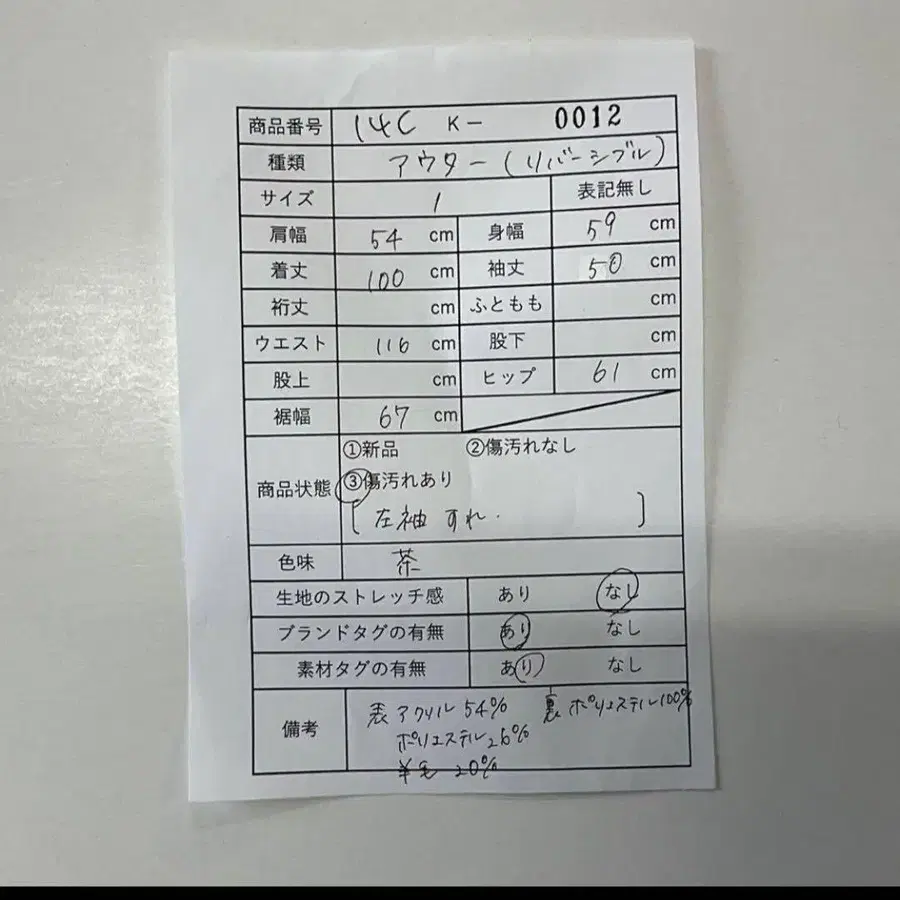 商品番号 14C K- 0012
種類 アウター(リバーシブル)
サイズ 1 表記無し
肩幅 54 cm 身幅 59 cm
着丈 100 cm 袖丈 50 cm
裄丈 cm ふともも cm
ウエスト 116 cm 股下 cm
股上 cm ヒップ 61 cm
裾幅 67 cm
①新品 ②傷汚れなし
商品状態 ③傷汚れあり
[左袖 すれ. ]
色味 茶
生地のストレッチ感 あり なし
ブランドタグの有無 あり なし
素材タグの有無 あり なし
備考 表 アクリル 54% 裏 ポリエステル100%
ポリエステル26%
羊毛 20%